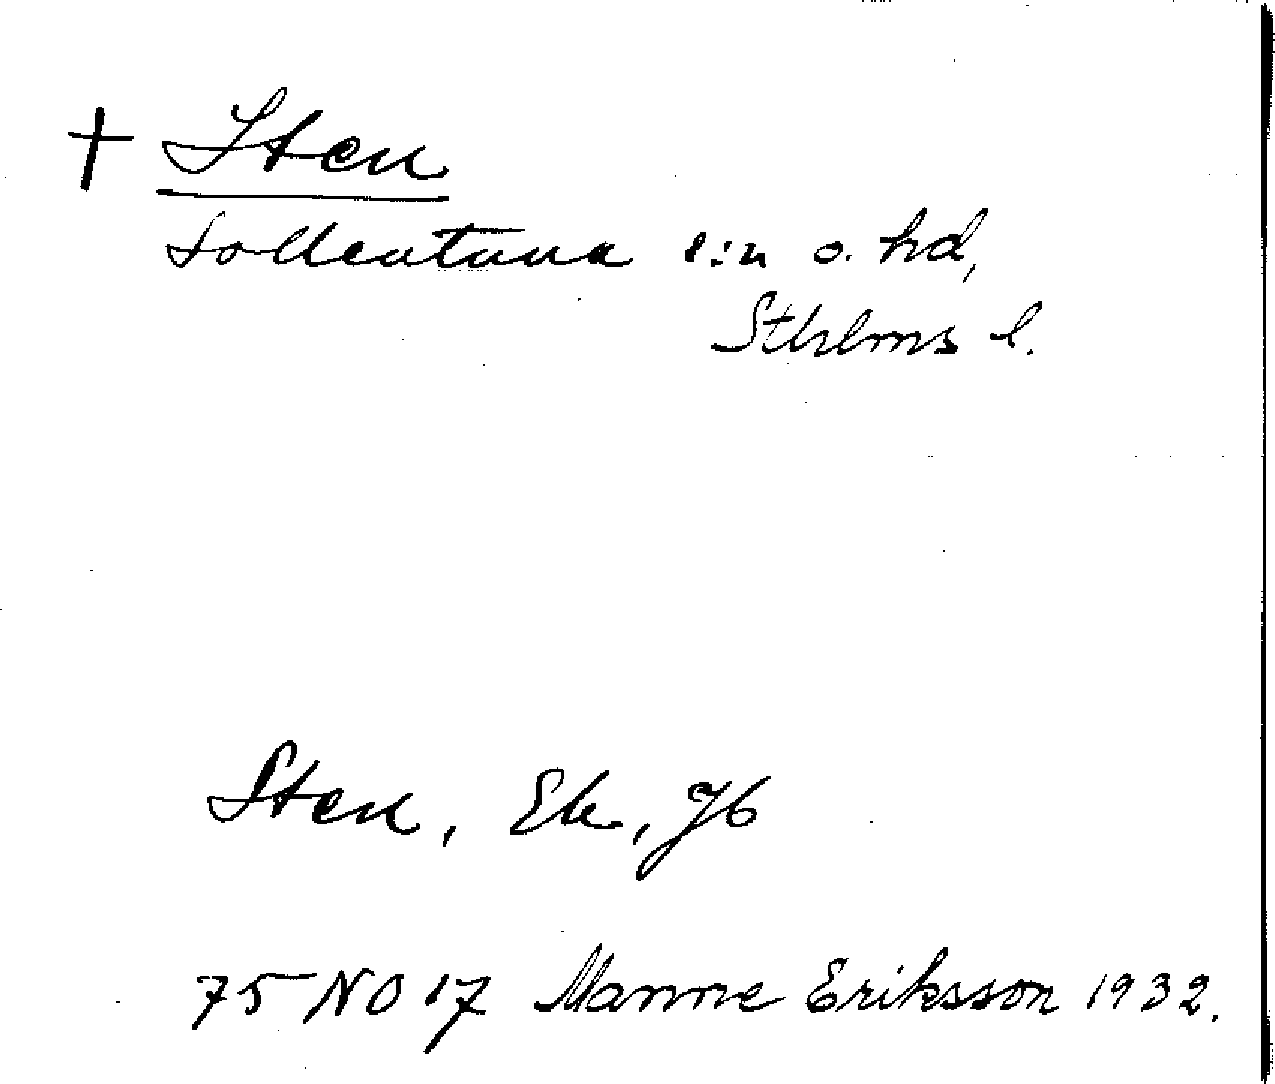 + Sten
Sollentuna s:n o. hd,
Sthlms l.
Sten, Ek, Jb
75 NO 17 Manne Eriksson 1932.